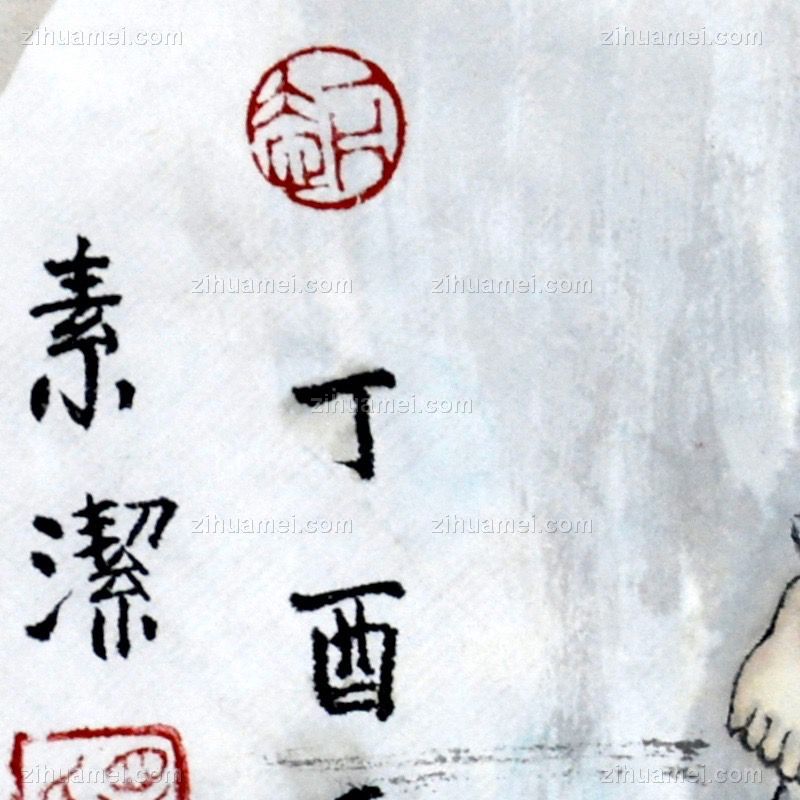 丁酉
素潔
zihuamei.com zihuamei.com
zihuamei.com zihuamei.com
zihuamei.com
zihuamei.com zihuamei.com
zihuamei.com zihuamei.com